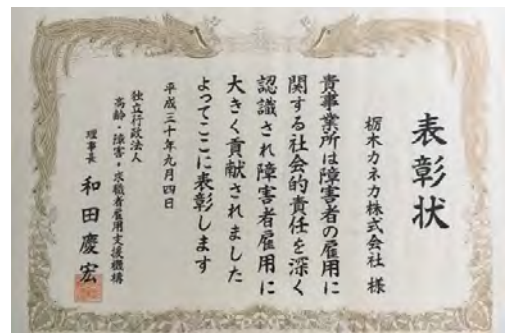 表彰状
栃木カネカ株式会社 様
貴事業所は障害者の雇用に
関する社会的責任を深く
認識され障害者雇用に
大きく貢献されました
よってここに表彰します
平成三十年九月四日
独立行政法人
高齢・障害・求職者雇用支援機構
理事長 和田慶宏